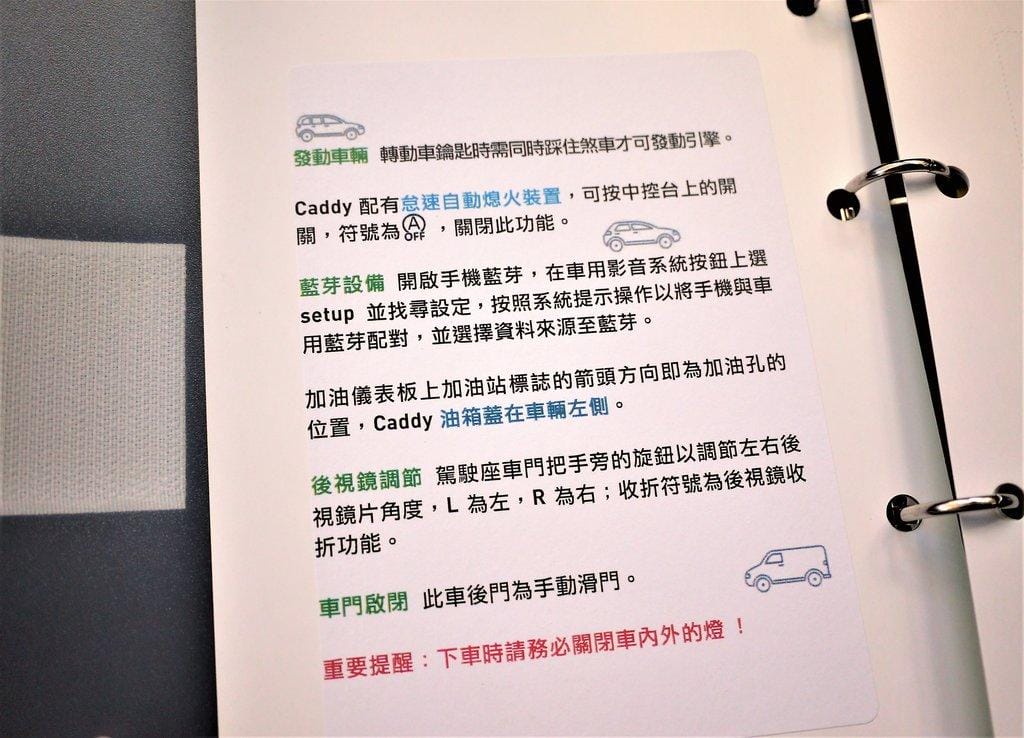 發動車輛 轉動車鑰匙時需同時踩住煞車才可發動引擎。
Caddy 配有怠速自動熄火裝置，可按中控台上的開
關，符號為Ⓐ OFF ，關閉此功能。
藍芽設備 開啟手機藍芽，在車用影音系統按鈕上選
setup 並找尋設定，按照系統提示操作以將手機與車
用藍芽配對，並選擇資料來源至藍芽。
加油儀表板上加油站標誌的箭頭方向即為加油孔的
位置，Caddy 油箱蓋在車輛左側。
後視鏡調節 駕駛座車門把手旁的旋鈕以調節左右後
視鏡片角度，L 為左，R 為右；收折符號為後視鏡收
折功能。
車門啟閉 此車後門為手動滑門。
重要提醒：下車時請務必關閉車內外的燈！